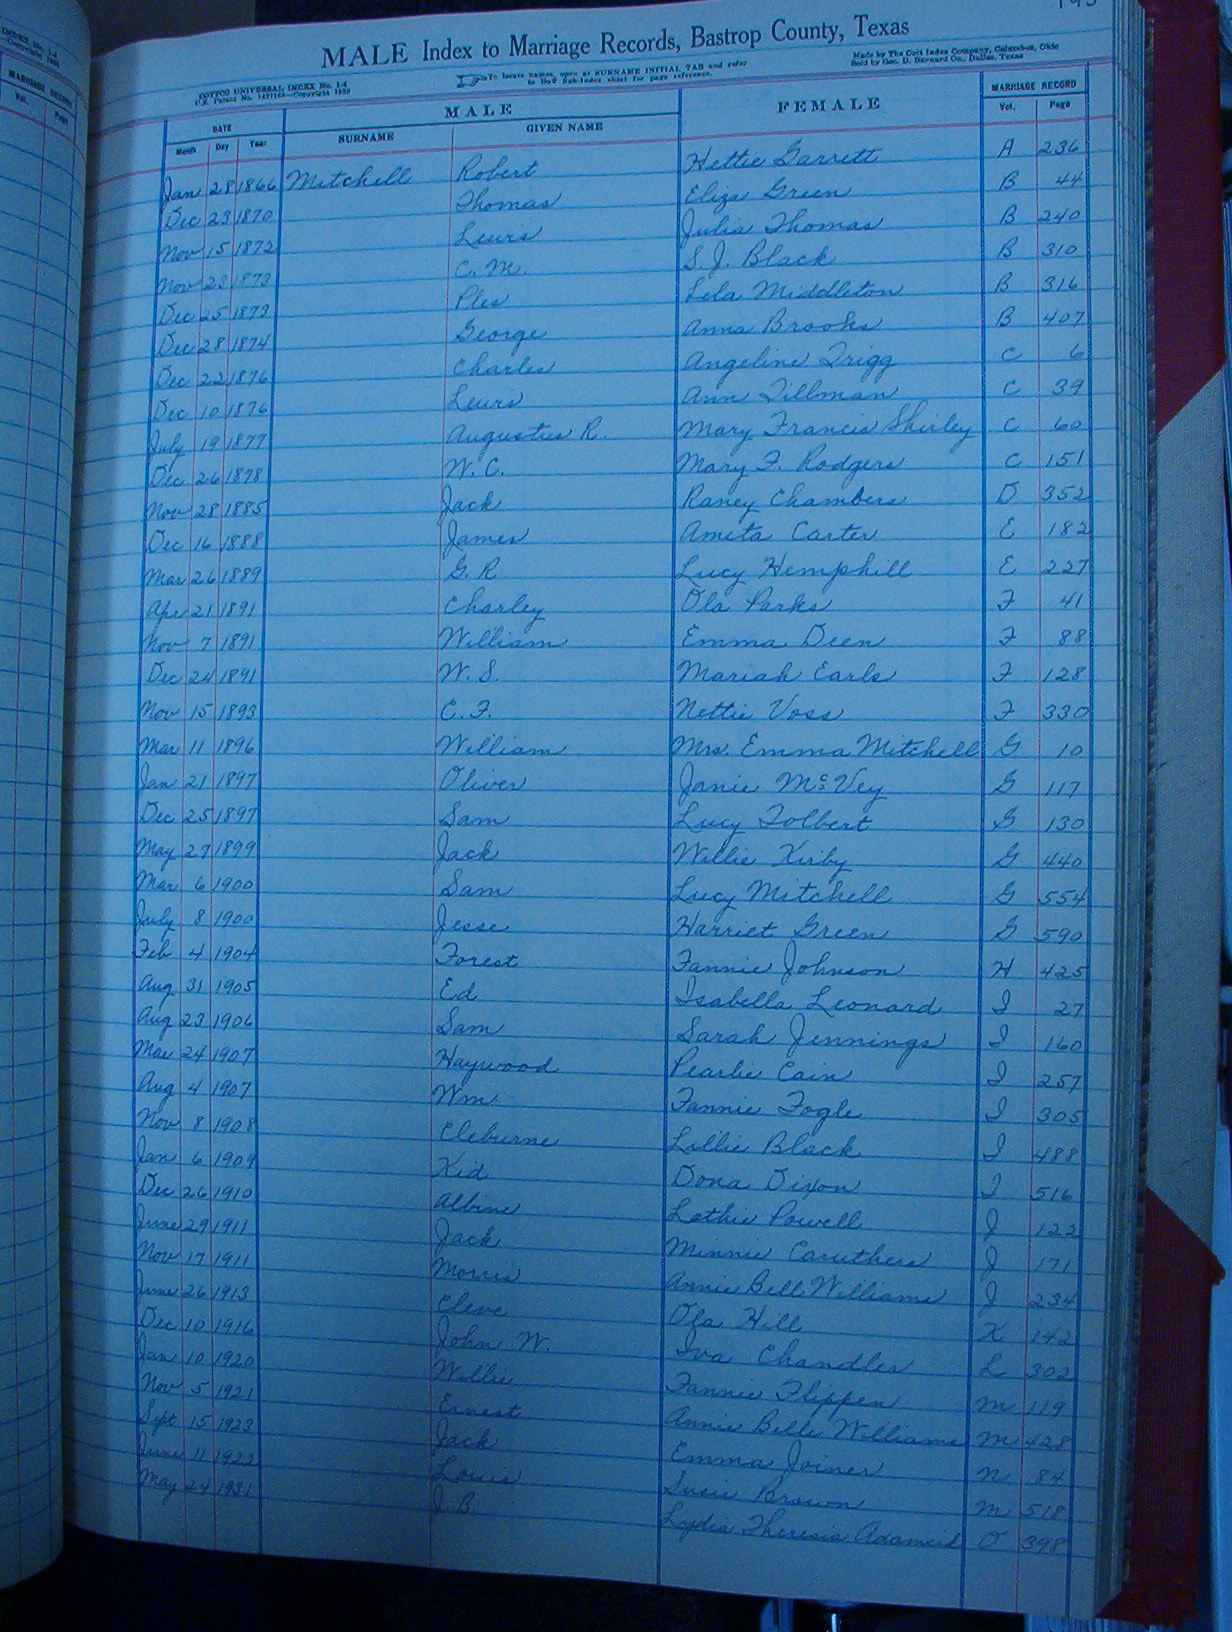 MALE Index to Marriage Records, Bastrop County, Texas
COTTCO UNIVERSAL INDEX No. 1-4
To locate names, open at SURNAME INITIAL TAB and refer
to Sub-Index sheet for page reference.
Made by The Cott Index Company, Columbus, Ohio
Sold by Geo. D. Barnard Co., Dallas, Texas
DATE MALE FEMALE MARRIAGE RECORD
Month Day Year SURNAME GIVEN NAME Vol. Page
Jan 28 1866 Mitchell Robert Hettie Garrett A 236
Dec 23 1870 Thomas Eliza Green B 44
Nov 15 1872 Lewis Julia Thomas B 240
Nov 23 1873 C. M. S. J. Black B 310
Dec 25 1873 Ples Lela Middleton B 316
Dec 28 1874 George Anna Brooks B 407
Dec 22 1876 Charles Angeline Trigg C 6
Dec 10 1876 Lewis Ann Tillman C 39
July 19 1877 Augustus R. Mary Francis Shirley C 60
Dec 26 1878 W. C. Mary F. Rodgers C 151
Nov 28 1885 Jack Raney Chambers D 352
Dec 16 1888 James Ameta Carter E 182
Mar 26 1889 G. R. Lucy Hemphill E 227
Apr 21 1891 Charley Ola Parks F 41
Nov 7 1891 William Emma Deen F 88
Dec 24 1891 W. S. Mariah Earls F 128
Nov 15 1893 C. F. Nettie Voss F 330
Mar 11 1896 William Mrs. Emma Mitchell G 10
Jan 21 1897 Oliver Janie McVey G 117
Dec 25 1897 Sam Lucy Tolbert G 130
May 27 1899 Jack Willie Kirby G 440
Mar 6 1900 Sam Lucy Mitchell G 554
July 8 1900 Jesse Harriet Green G 590
Feb 4 1904 Forest Fannie Johnson H 425
Aug 31 1905 Ed Isabella Leonard I 27
Aug 23 1906 Sam Sarah Jennings I 160
Mar 24 1907 Haywood Pearlie Cain I 257
Aug 4 1907 Wm Fannie Fogle I 305
Nov 8 1908 Cleburne Lillie Black I 488
Jan 6 1909 Kid Dona Dixon I 516
Dec 26 1910 Albine Lathie Powell J 122
June 29 1911 Jack Minnie Caruthers J 171
Nov 17 1911 Morris Annie Bell Williams J 234
June 26 1913 Cleve Ola Hill K 142
Dec 10 1916 John W. Iva Chandler L 302
Jan 10 1920 Willie Fannie Flippen M 119
Nov 5 1921 Ernest Annie Belle Williams M 428
Sept 15 1923 Jack Emma Joiner N 84
June 11 1922 Louis Susie Brown M 518
May 24 1931 J. B. Lydia Theresia Adamcik O 398